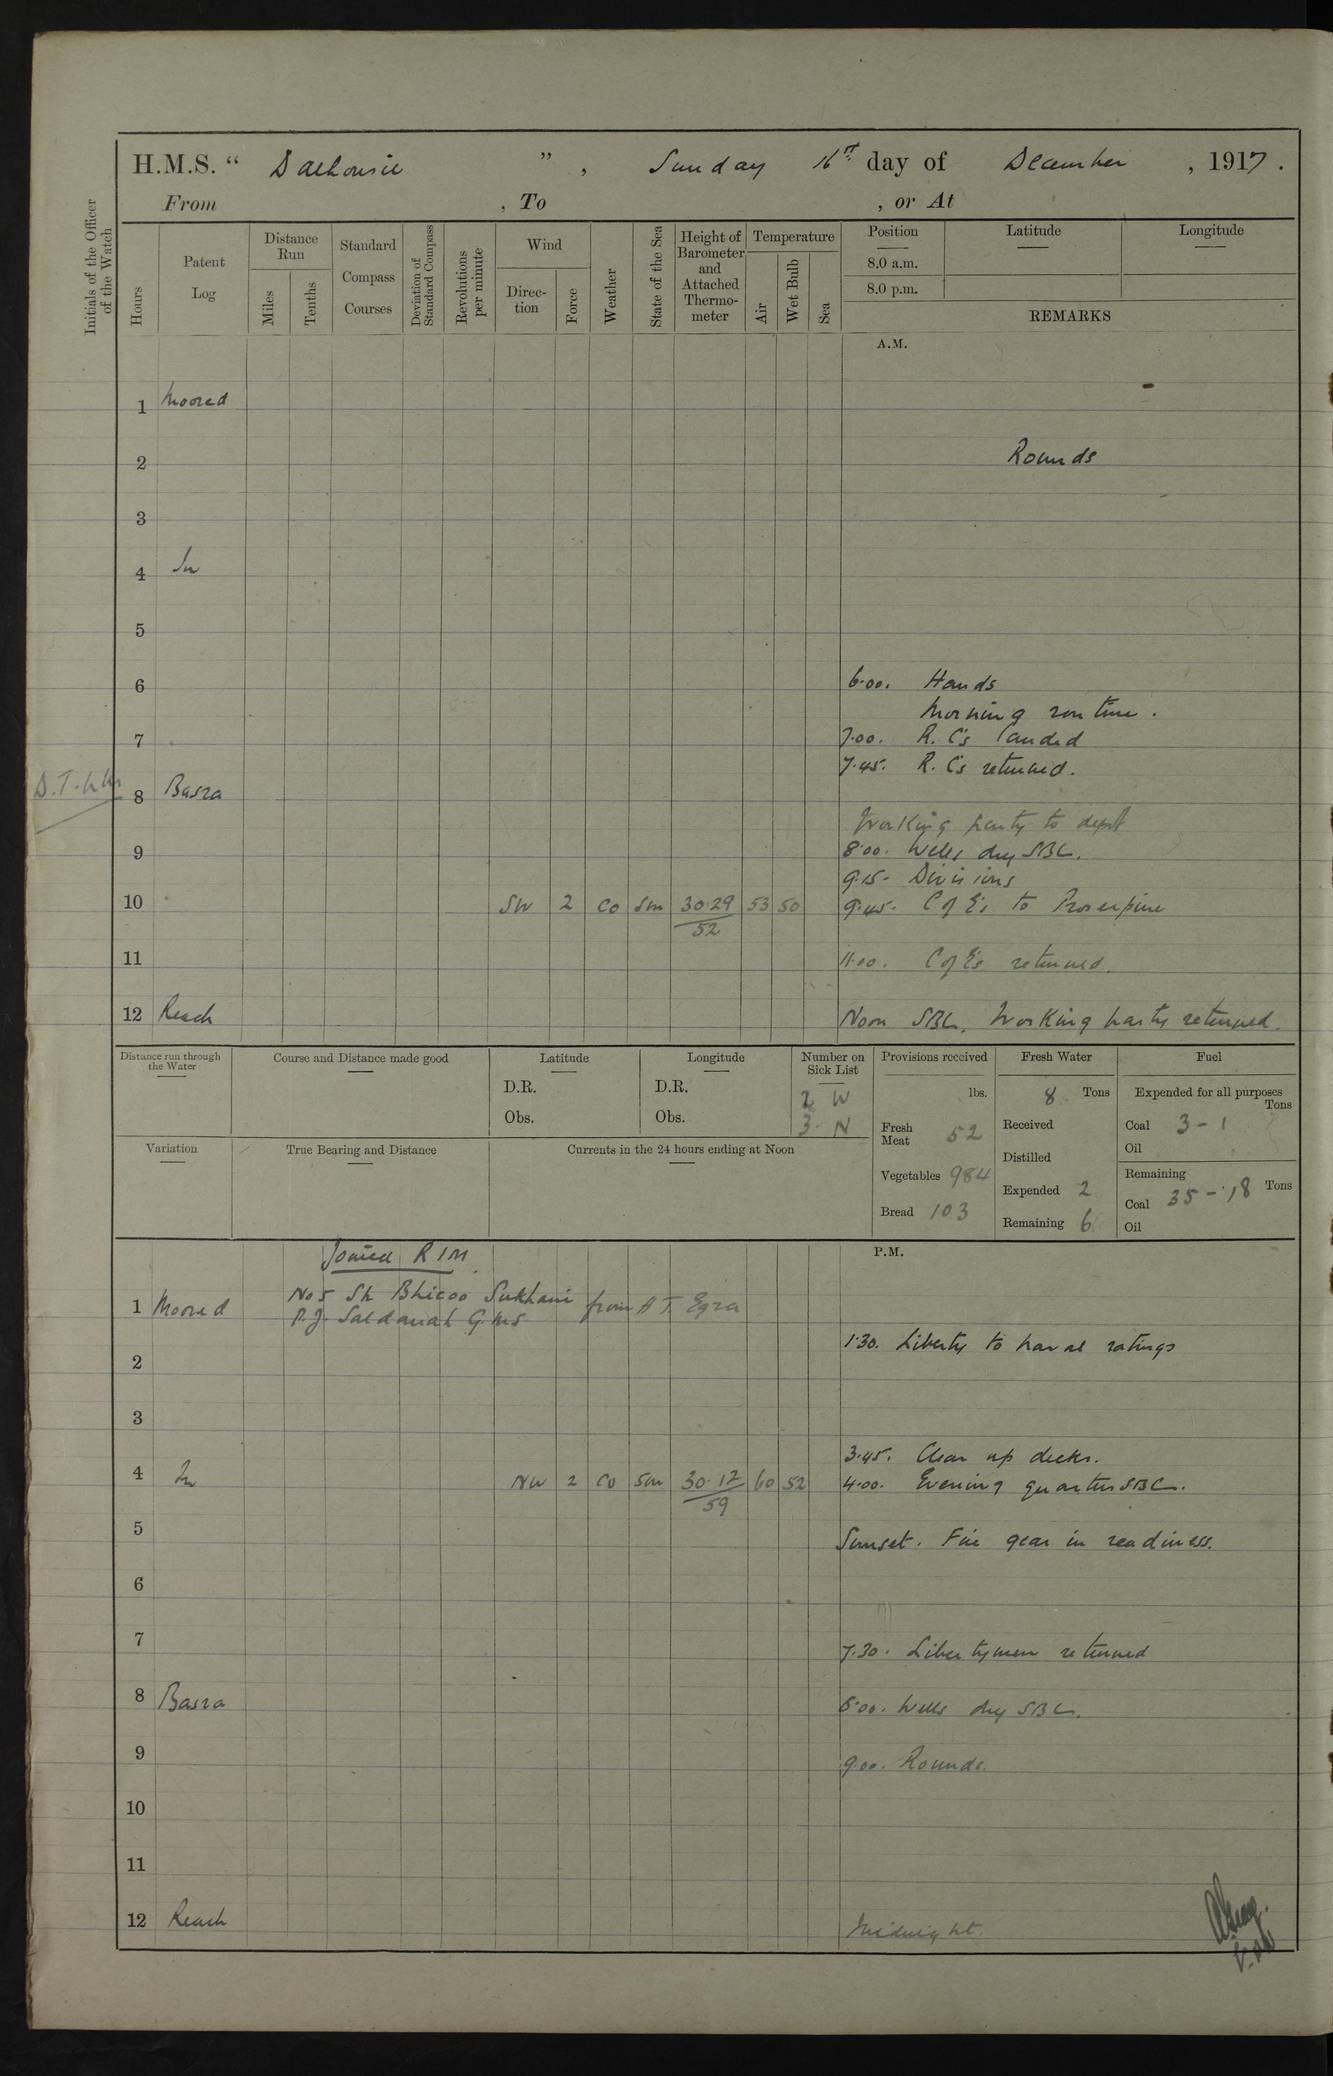 H.M.S. " Dalhousie ", Sunday 16th day of December, 1917.
From , To , or At
Initials of the Officer of the Watch
Hours
Patent Log
Distance Run
Miles
Tenths
Standard Compass Courses
Deviation of Standard Compass
Revolutions per minute
Wind
Direction
Force
Weather
State of the Sea
Height of Barometer and Attached Thermometer
Temperature
Air
Wet Bulb
Sea
Position
8.0 a.m.
8.0 p.m.
Latitude
Longitude
REMARKS
A.M.
1 Moored
2 Rounds
3
4 In
5
6 6.00. Hands
Morning routine.
7 7.00. R.C's landed
7.45. R.C's returned.
8 Basra
Working party to depot
9 8.00. Wells dry SBC.
9.15- Divisions
10 SW 2 co Sm 30.29 53 50 9.45. C of E's to Proserpine
52
11 11.00. C of E's returned.
12 Reach Noon SBC. Working party returned.
Distance run through the Water
Course and Distance made good
Latitude
D.R.
Obs.
Longitude
D.R.
Obs.
Number on Sick List
2 W
3. N
Provisions received
lbs.
Fresh Meat 52
Vegetables 984
Bread 103
Fresh Water
8 Tons
Received
Distilled
Expended 2
Remaining 6
Fuel
Expended for all purposes
Tons
Coal 3-1
Oil
Remaining
Coal 35-18 Tons
Oil
Variation
True Bearing and Distance
Currents in the 24 hours ending at Noon
P.M.
Joined RIM.
No 5 Sk Bhicoo Sukhani from H T. Egra
1 Moored P.J. Saldanah G.M.S
1.30. Liberty to naval ratings
2
3
3.45. Clear up decks.
4 In NW 2 co Sm 30.12 60 52 4.00. Evening quarters SBC.
59
5 Sunset. Fire gear in readiness.
6
7 7.30. Libertymen returned
8 Basra 8.00. Wells dry SBC.
9 9.00. Rounds.
10
11
12 Reach Midnight.